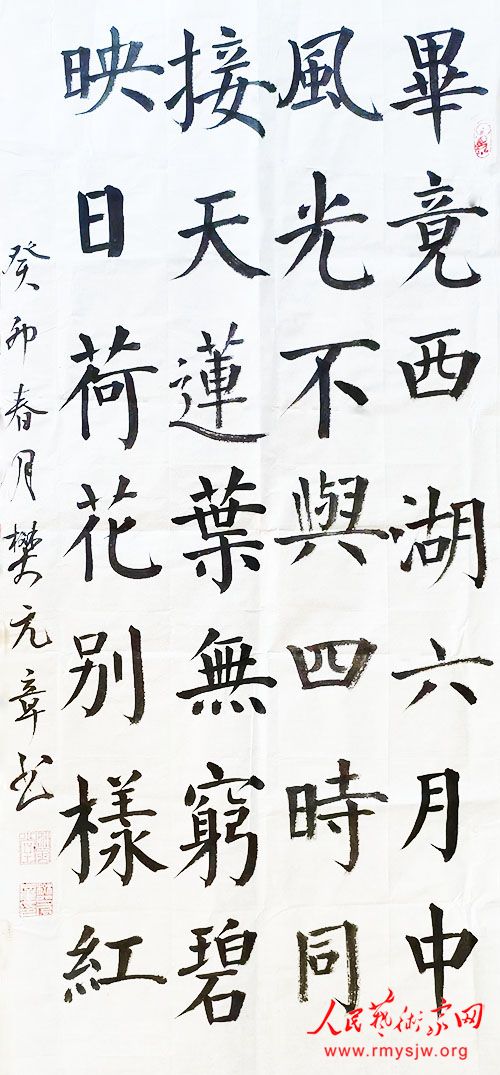 畢竟西湖六月中
風光不與四時同
接天蓮葉無窮碧
映日荷花别樣紅
癸卯春月樊元章书
人民藝術家网
www.rmysjw.org